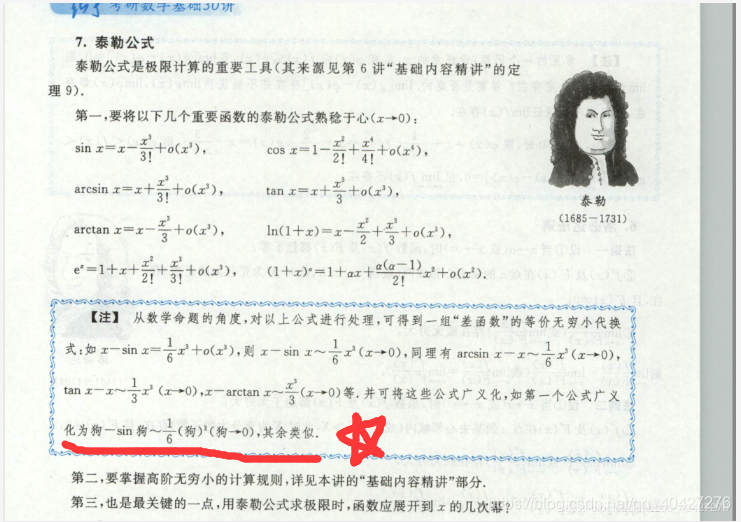 考研数学基础30讲
7. 泰勒公式
泰勒公式是极限计算的重要工具(其来源见第 6 讲“基础内容精讲”的定
理 9).
第一,要将以下几个重要函数的泰勒公式熟稔于心(x→0):
sin x=x-x³/3!+o(x³), cos x=1-x²/2!+x⁴/4!+o(x⁴),
arcsin x=x+x³/3!+o(x³), tan x=x+x³/3+o(x³),
arctan x=x-x³/3+o(x³), ln(1+x)=x-x²/2+x³/3+o(x³),
eˣ=1+x+x²/2!+x³/3!+o(x³), (1+x)ᵅ=1+αx+α(α-1)/2! x²+o(x²).
泰勒
(1685-1731)
【注】 从数学命题的角度,对以上公式进行处理,可得到一组“差函数”的等价无穷小代换
式:如 x-sin x=1/6 x³+o(x³),则 x-sin x~1/6 x³(x→0),同理有 arcsin x-x~1/6 x³(x→0),
tan x-x~1/3 x³ (x→0),x-arctan x~x³/3(x→0)等.并可将这些公式广义化,如第一个公式广义
化为狗-sin 狗~1/6(狗)³(狗→0),其余类似.
第二,要掌握高阶无穷小的计算规则,详见本讲的“基础内容精讲”部分.
第三,也是最关键的一点,用泰勒公式求极限时,函数应展开到 x 的几次幂?
https://blog.csdn.net/qq_40427276